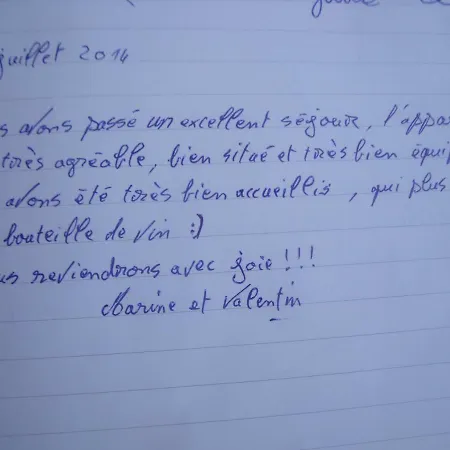 juillet 2014
s avons passé un excellent séjour, l'appar
très agréable, bien situé et très bien équip
avons été très bien accueillis, qui plus
bouteille de vin :)
us reviendrons avec joie !!!
Marine et Valentin